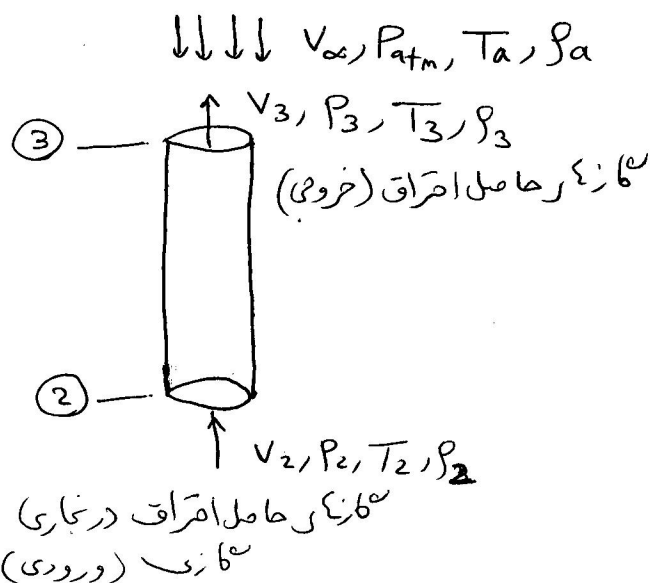 V∞, Patm, Ta, ρa
V3, P3, T3, ρ3
③
گازهای حاصل احتراق (خروجی)
②
V2, P2, T2, ρ2
گازهای حاصل احتراق در بخاری
گازی (ورودی)